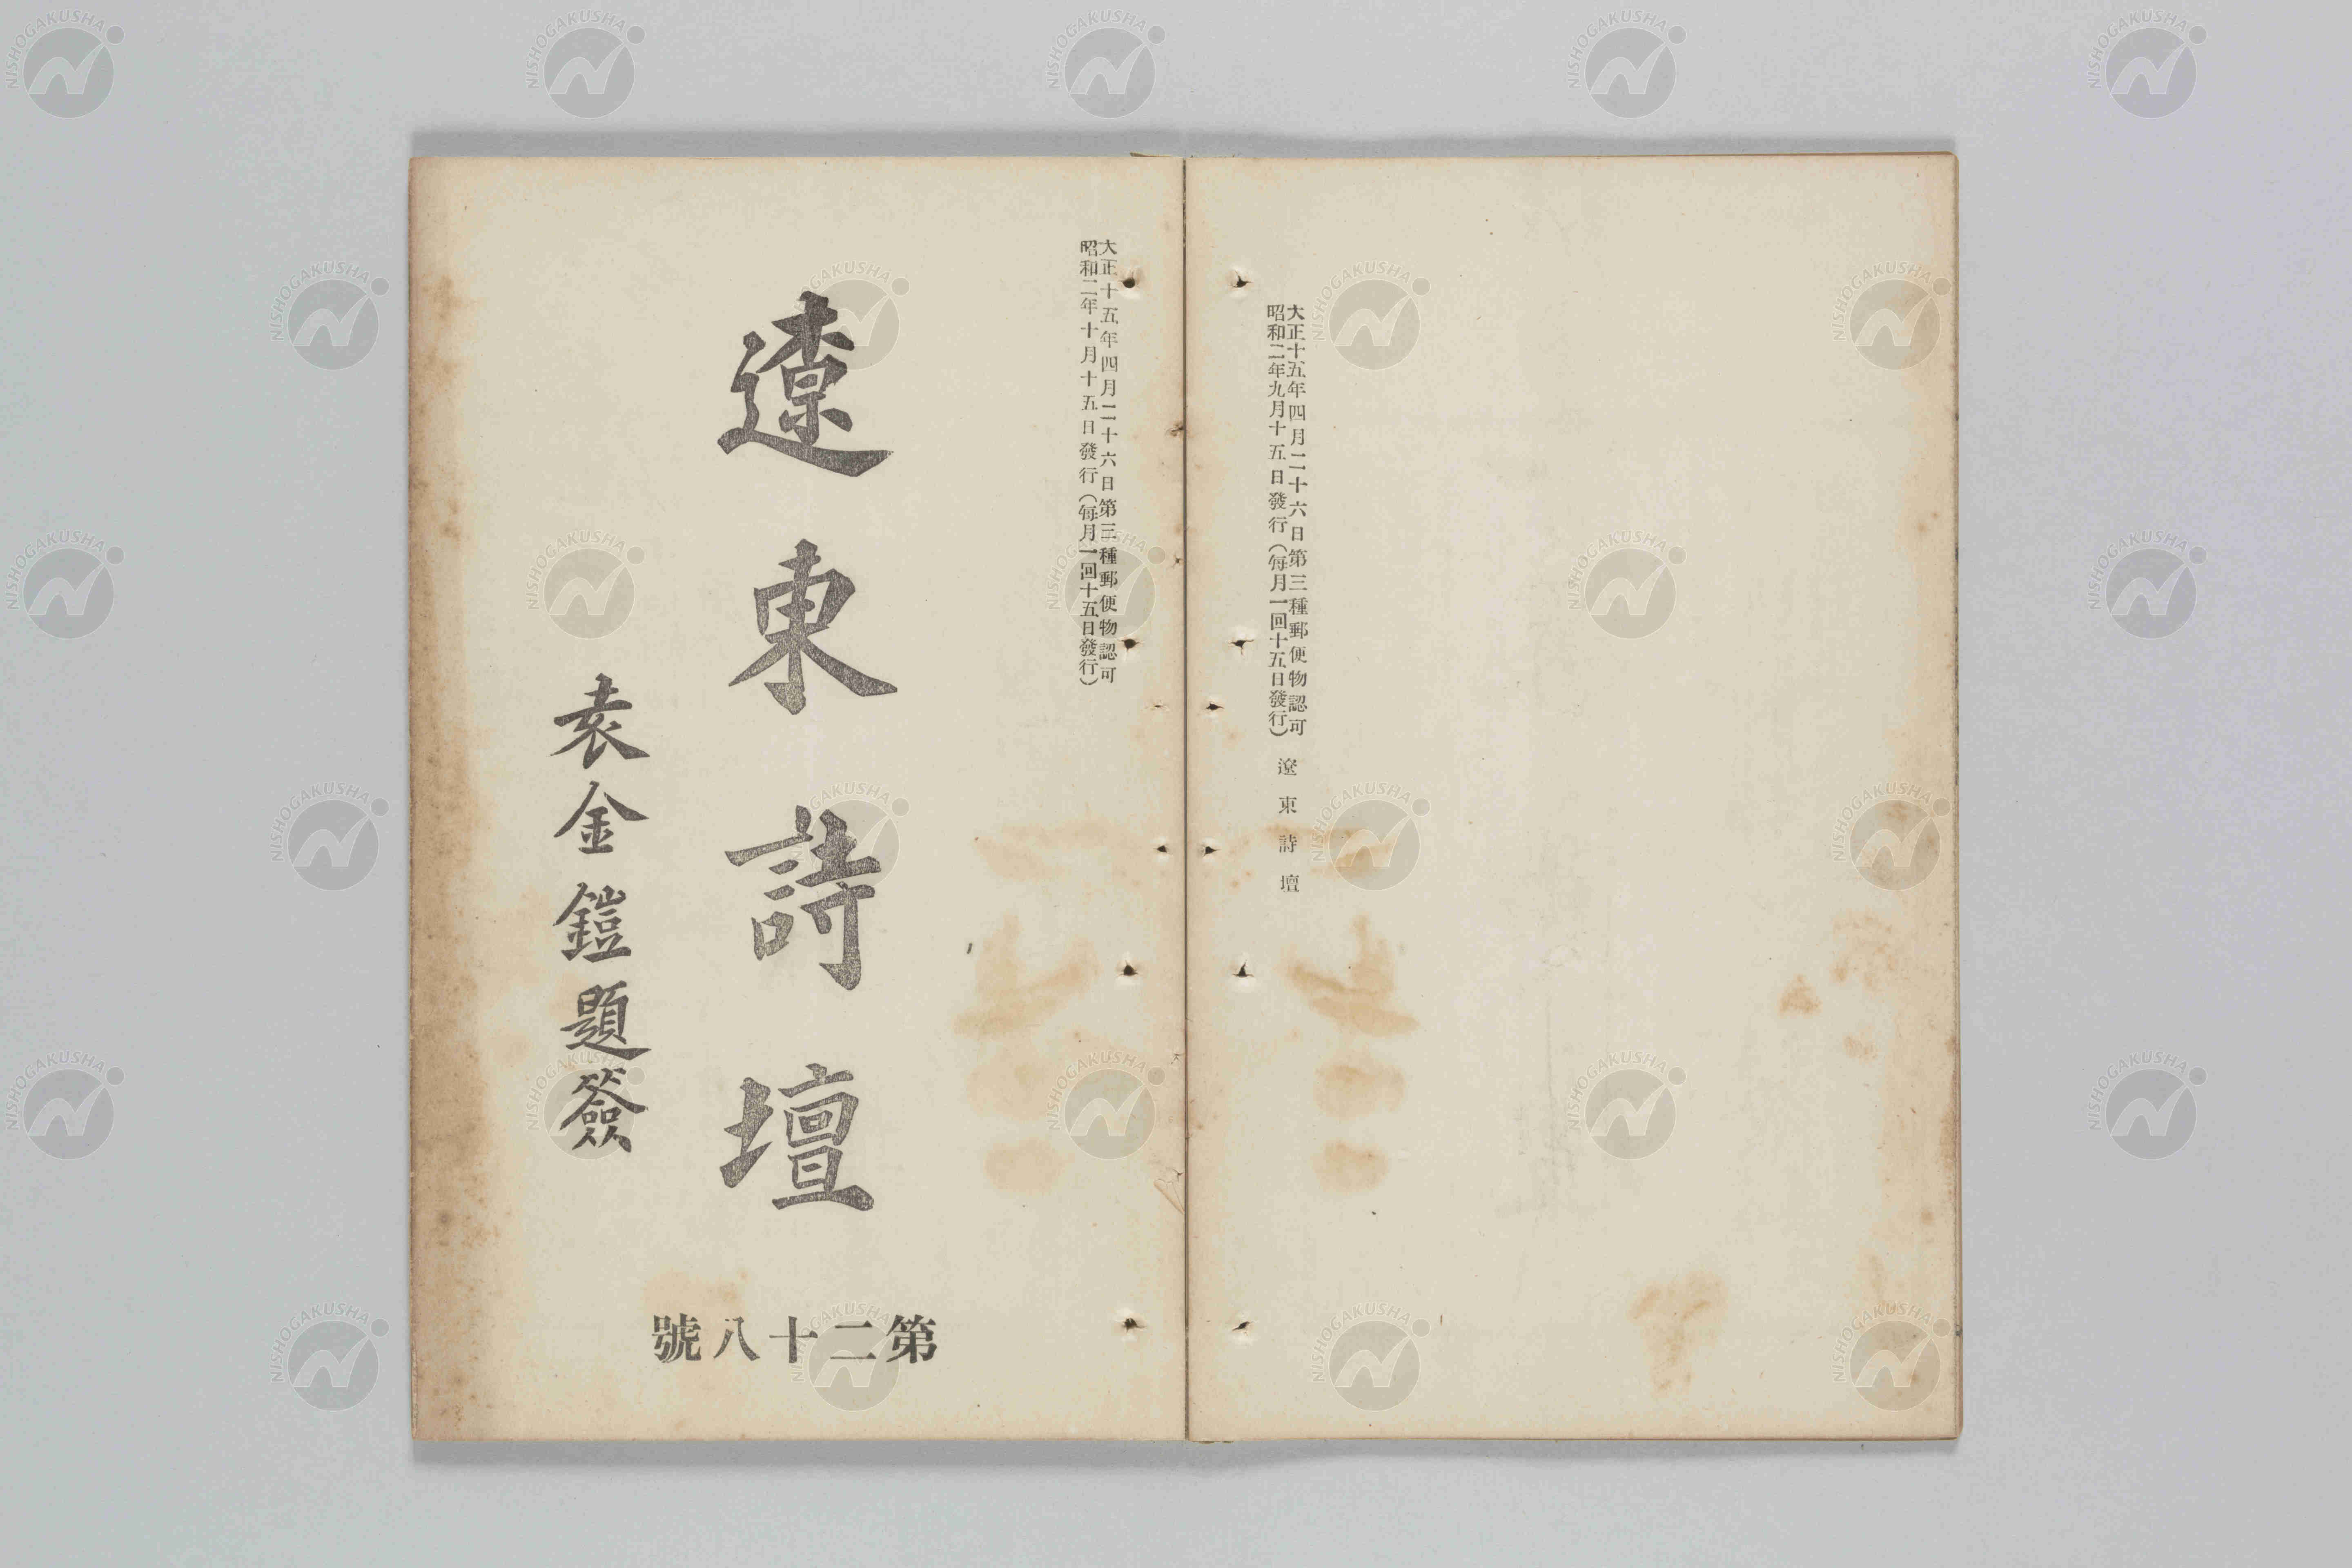 大正十五年四月二十六日第三種郵便物認可
昭和二年九月十五日發行（每月一回十五日發行）
遼東詩壇
大正十五年四月二十六日第三種郵便物認可
昭和二年十月十五日發行（每月一回十五日發行）
遼東詩壇
袁金鎧題簽
第二十八號
NISHOGAKUSHA